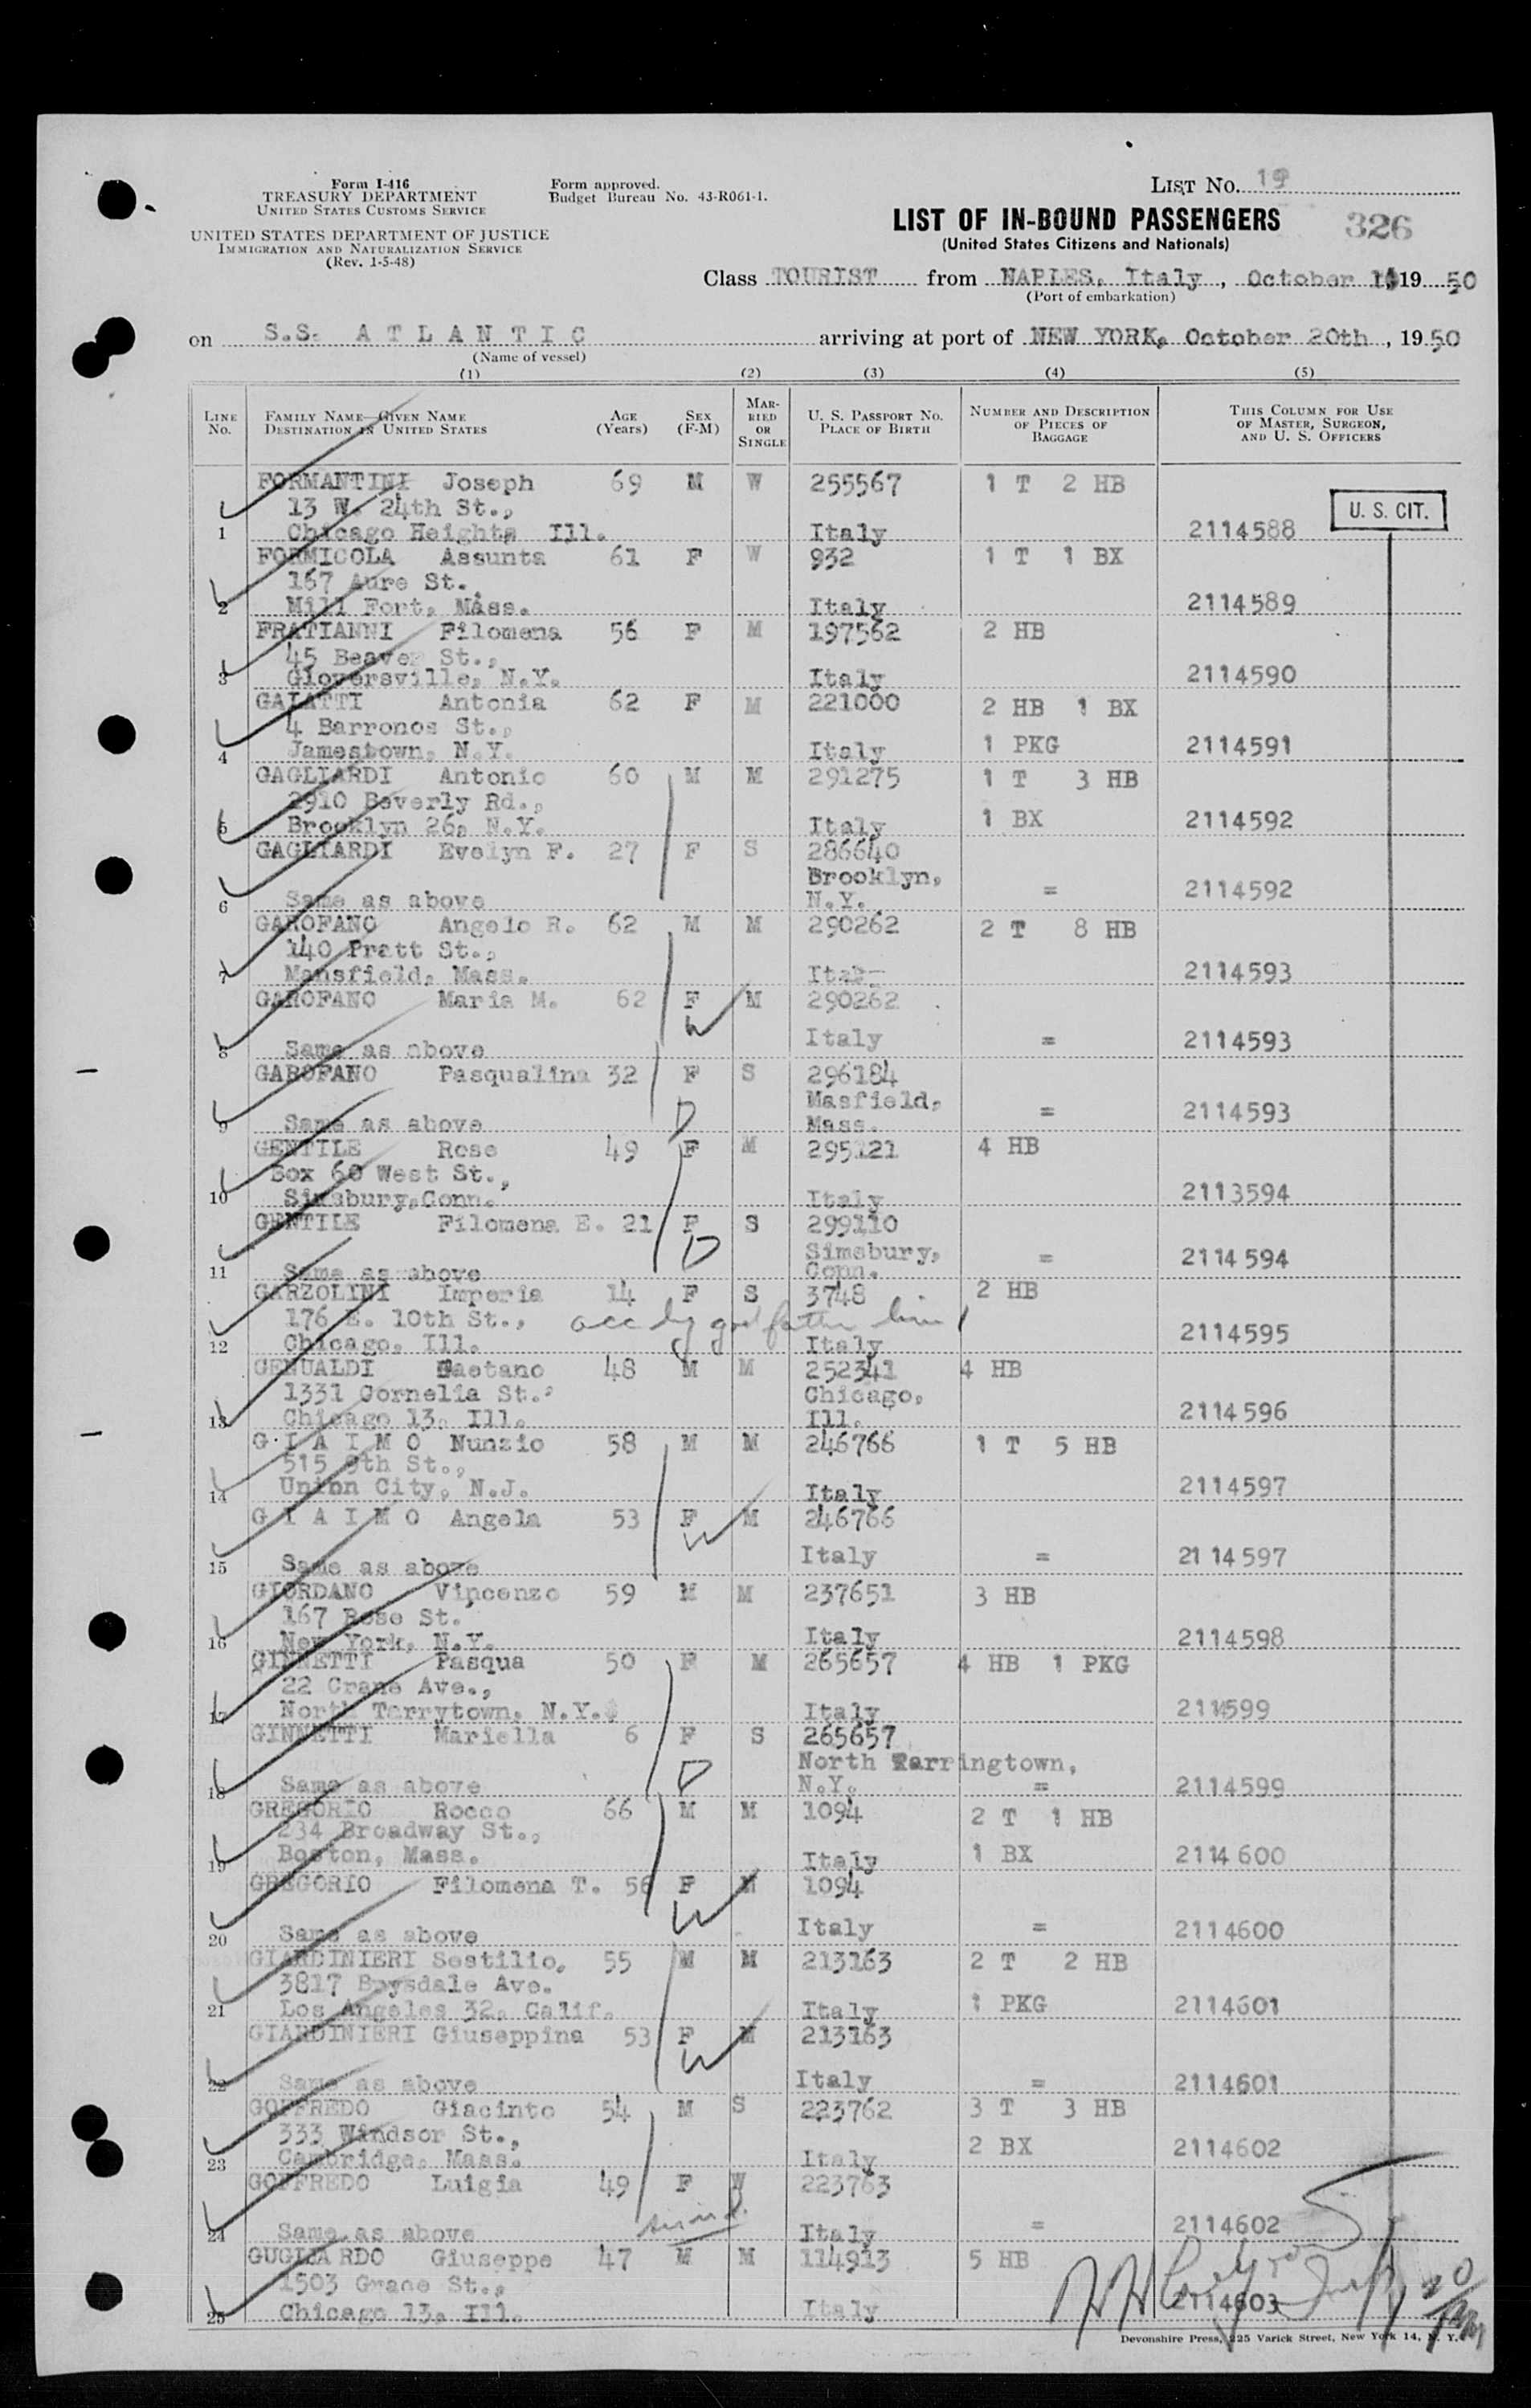 Form I-416
TREASURY DEPARTMENT
UNITED STATES CUSTOMS SERVICE
UNITED STATES DEPARTMENT OF JUSTICE
IMMIGRATION AND NATURALIZATION SERVICE
(Rev. 1-5-48)
Form approved.
Budget Bureau No. 43-R061-1.
LIST NO. 19
LIST OF IN-BOUND PASSENGERS
326
(United States Citizens and Nationals)
Class TOURIST from NAPLES, Italy, October 19 50
(Port of embarkation)
on S.S. ATLANTIC arriving at port of NEW YORK, October 20th, 1950
(Name of vessel)
(1) (2) (3) (4) (5)
LINE NO. FAMILY NAME—GIVEN NAME DESTINATION IN UNITED STATES AGE (Years) SEX (F-M) MARRIED OR SINGLE U. S. PASSPORT NO. PLACE OF BIRTH NUMBER AND DESCRIPTION OF PIECES OF BAGGAGE THIS COLUMN FOR USE OF MASTER, SURGEON, AND U. S. OFFICERS
FORMANTINI Joseph 69 M W 255567 1 T 2 HB
13 W. 24th St.,
U. S. CIT.
1 Chicago Heights Ill. Italy 2114588
FORMICOLA Assunta 61 F W 932 1 T 1 BX
167 Aure St.
2 Mill Fort, Mass. Italy 2114589
FRATIANNI Filomena 56 F M 197562 2 HB
45 Beaver St.,
3 Gloversville, N.Y. Italy 2114590
GALATTI Antonia 62 F M 221000 2 HB 1 BX
4 Barronos St.,
4 Jamestown, N.Y. Italy 1 PKG 2114591
GAGLIARDI Antonio 60 M M 291275 1 T 3 HB
2910 Beverly Rd.,
5 Brooklyn 26, N.Y. Italy 1 BX 2114592
GAGLIARDI Evelyn F. 27 F S 286640
Brooklyn,
6 Same as above N.Y. = 2114592
GAROFANO Angelo R. 62 M M 290262 2 T 8 HB
140 Pratt St.,
7 Mansfield, Mass. 2114593
GAROFANO Maria M. 62 F M 290262
W
8 Same as above Italy = 2114593
GAROFANO Pasqualina 32 F S 296184
Masfield,
9 Same as above D Mass. = 2114593
GENTILE Rose 49 F M 295121 4 HB
Box 60 West St.,
10 Simsbury,Conn. Italy 2113594
GENTILE Filomena E. 21 F S 299110
D Simsbury,
11 Same as above Conn. = 2114594
GARZOLINI Imperia 14 F S 3748 2 HB
176 E. 10th St., acc by
12 Chicago, Ill. Italy 2114595
GENUALDI Gaetano 48 M M 252341 4 HB
1331 Cornelia St. Chicago,
13 Chicago 13, Ill. Ill. 2114596
GIAIMO Nunzio 58 M M 246766 1 T 5 HB
515 9th St.,
14 Union City, N.J. Italy 2114597
GIAIMO Angela 53 F M 246766
W
15 Same as above Italy = 2114597
GIORDANO Vincenzo 59 M M 237651 3 HB
167 Rose St.
16 New York, N.Y. Italy 2114598
GINNETTI Pasqua 50 F M 265657 4 HB 1 PKG
22 Crane Ave.,
17 North Tarrytown, N.Y. Italy 2114599
GINNETTI Mariella 6 F S 265657
D North Tarringtown,
18 Same as above N.Y. = 2114599
GREGORIO Rocco 66 M M 1094 2 T 1 HB
234 Broadway St.,
19 Boston, Mass. Italy 1 BX 2114600
GREGORIO Filomena T. 56 F M 1094
W
20 Same as above Italy = 2114600
GIARDINIERI Sestilio, 55 M M 213163 2 T 2 HB
3817 Boysdale Ave.
21 Los Angeles 32, Calif. Italy 1 PKG 2114601
GIARDINIERI Giuseppina 53 F M 213163
W
22 Same as above Italy = 2114601
GOFFREDO Giacinto 54 M S 223762 3 T 3 HB
333 Windsor St.,
23 Cambridge, Mass. Italy 2 BX 2114602
GOFFREDO Luigia 49 F W 223763
24 Same as above Italy = 2114602
GUGLIARDO Giuseppe 47 M M 114913 5 HB
1503 Grace St.,
25 Chicago 13, Ill. Italy 2114603
Devonshire Press, 225 Varick Street, New York 14, N. Y.